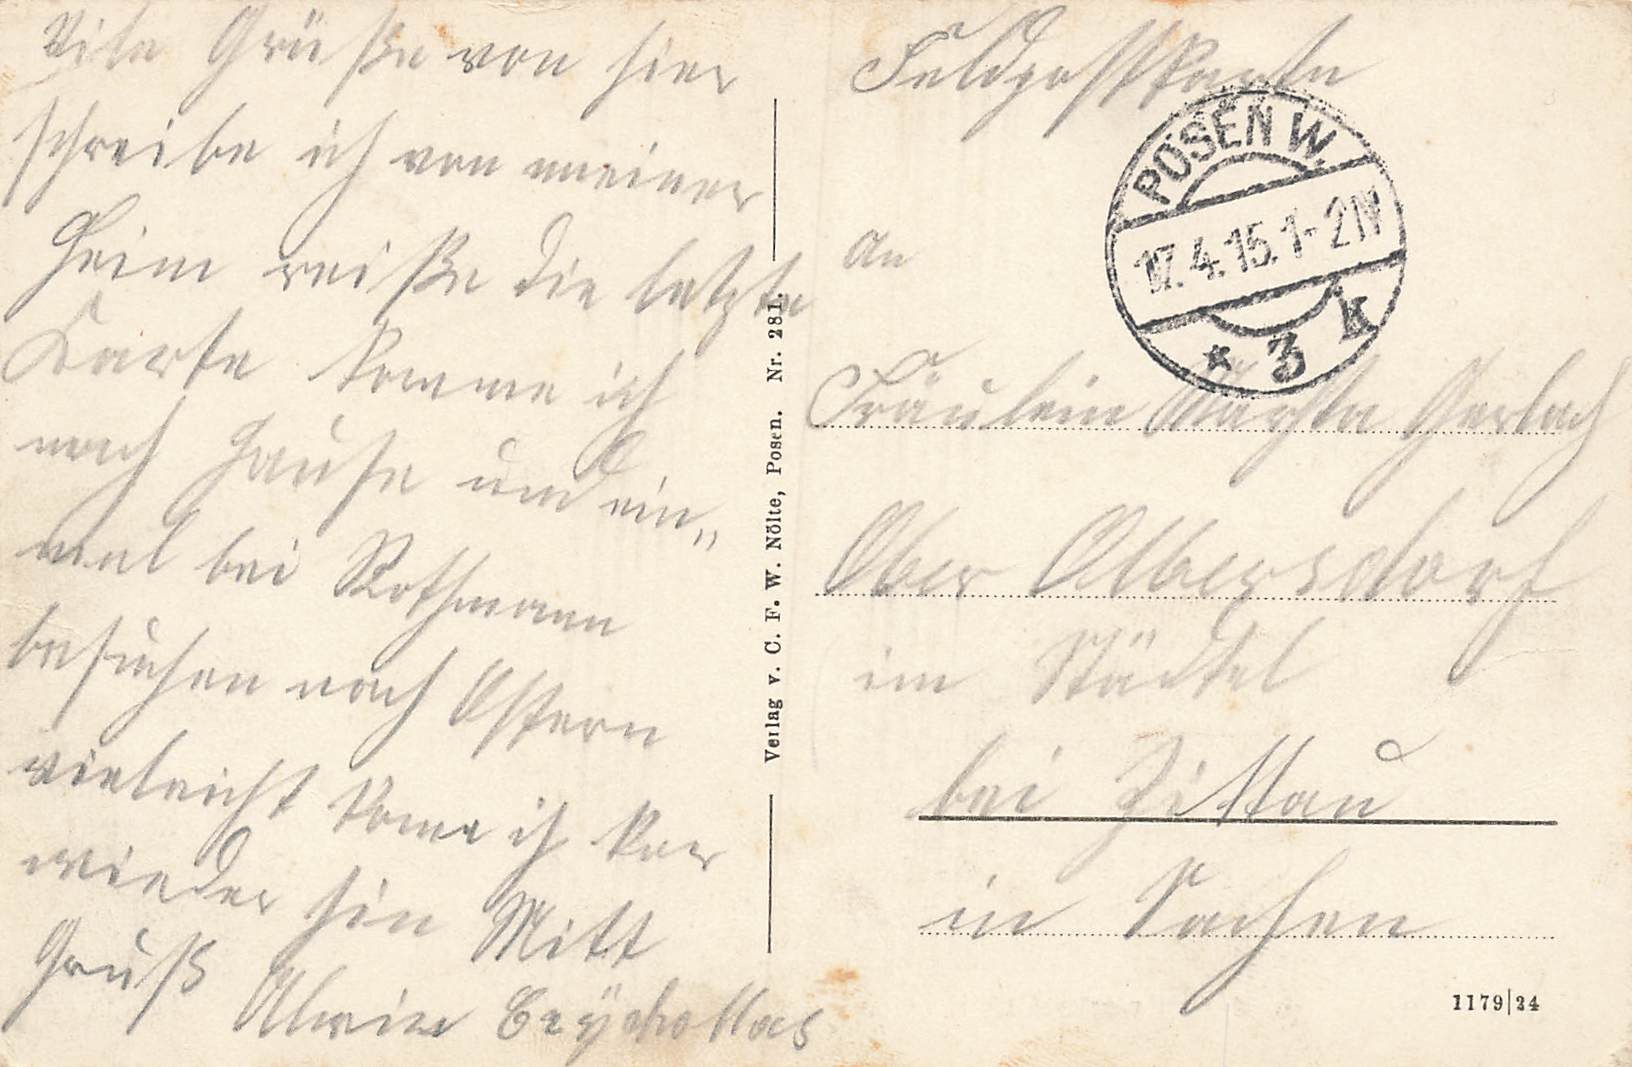 Vile Grüße von hier
schreibe ich von meiner
Heim reiße die letzte
Karte komme ich
nach Hause und ein„
mal bei Rothmann
besuchen nach Ostern
vieleicht kome ich
wieder hin Mitt
Gruß Alwin
Verlag v. C. F. W. Nölte, Posen. Nr. 281.
Feldpostkarte
POSEN W.
17.4.15.1-2N
* 3 k
An
Fräulein Gerlach
Ober Olbersdorf
im Städtel
bei Zittau
in Sachen
1179|24